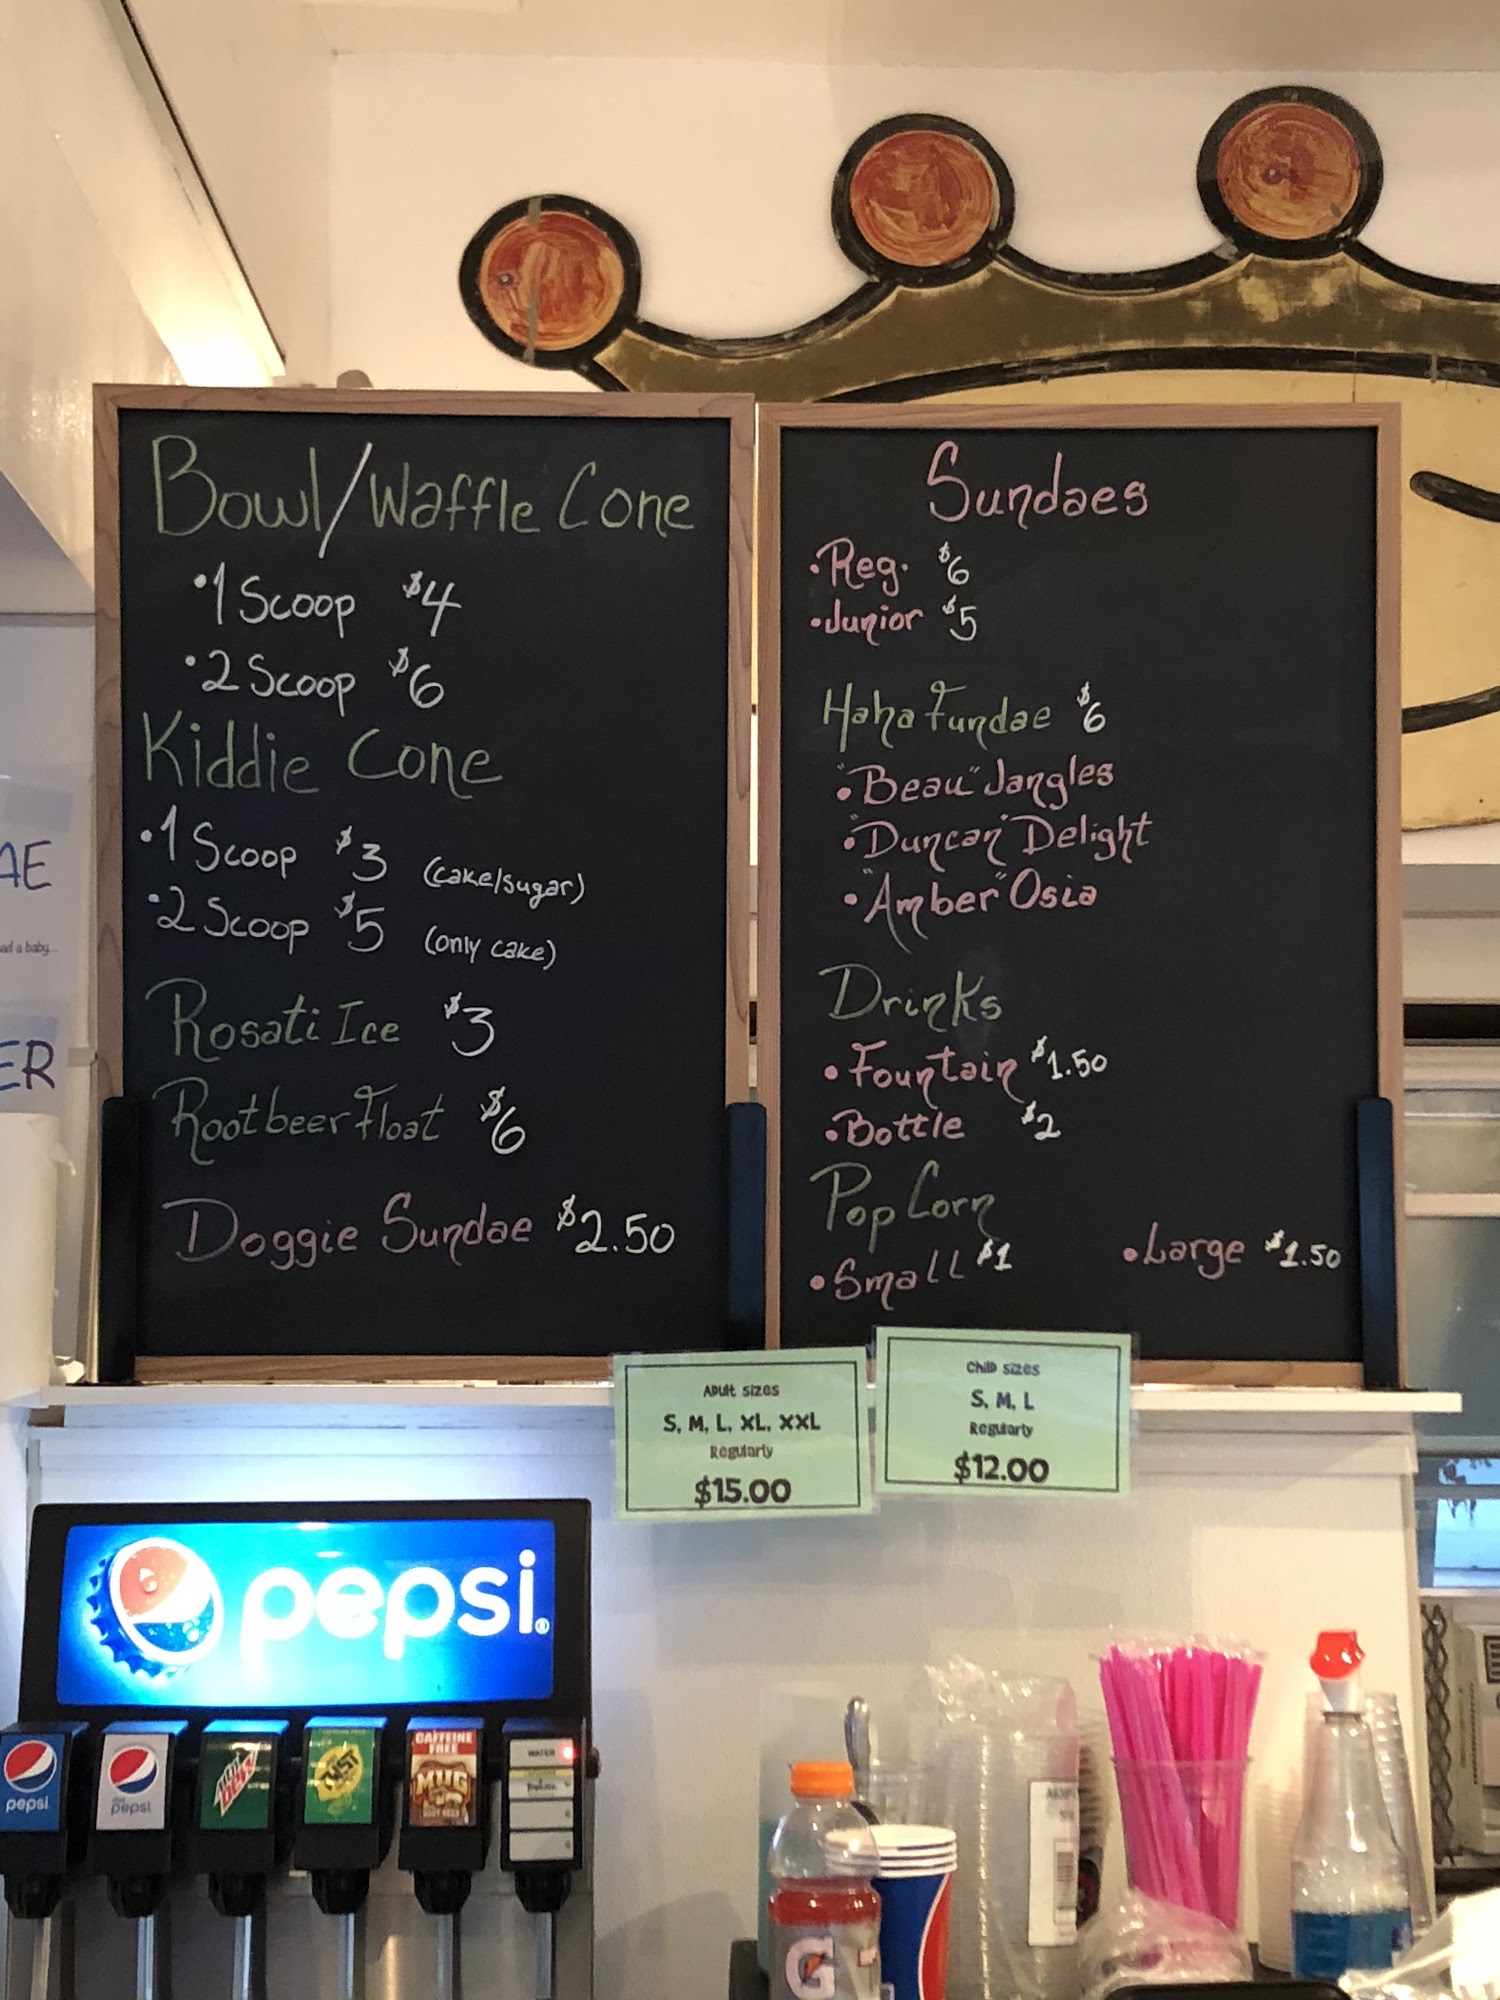 Bowl/Waffle Cone
•1 Scoop $4
•2 Scoop $6
Kiddie Cone
•1 Scoop $3 (cake/sugar)
•2 Scoop $5 (only cake)
Rosati Ice $3
Rootbeer Float $6
Doggie Sundae $2.50
Sundaes
•Reg. $6
•Junior $5
Haha Fundae $6
•"Beau" Jangles
•"Duncan" Delight
•"Amber" Osia
Drinks
•Fountain $1.50
•Bottle $2
Pop Corn
•Small $1 •Large $1.50
AE
ad a baby...
ER
Adult sizes
S, M, L, XL, XXL
Regularly
$15.00
Child sizes
S, M, L
Regularly
$12.00
pepsi
pepsi
diet pepsi
Mtn Dew
CAFFEINE FREE
MUG
ROOT BEER
WATER
G